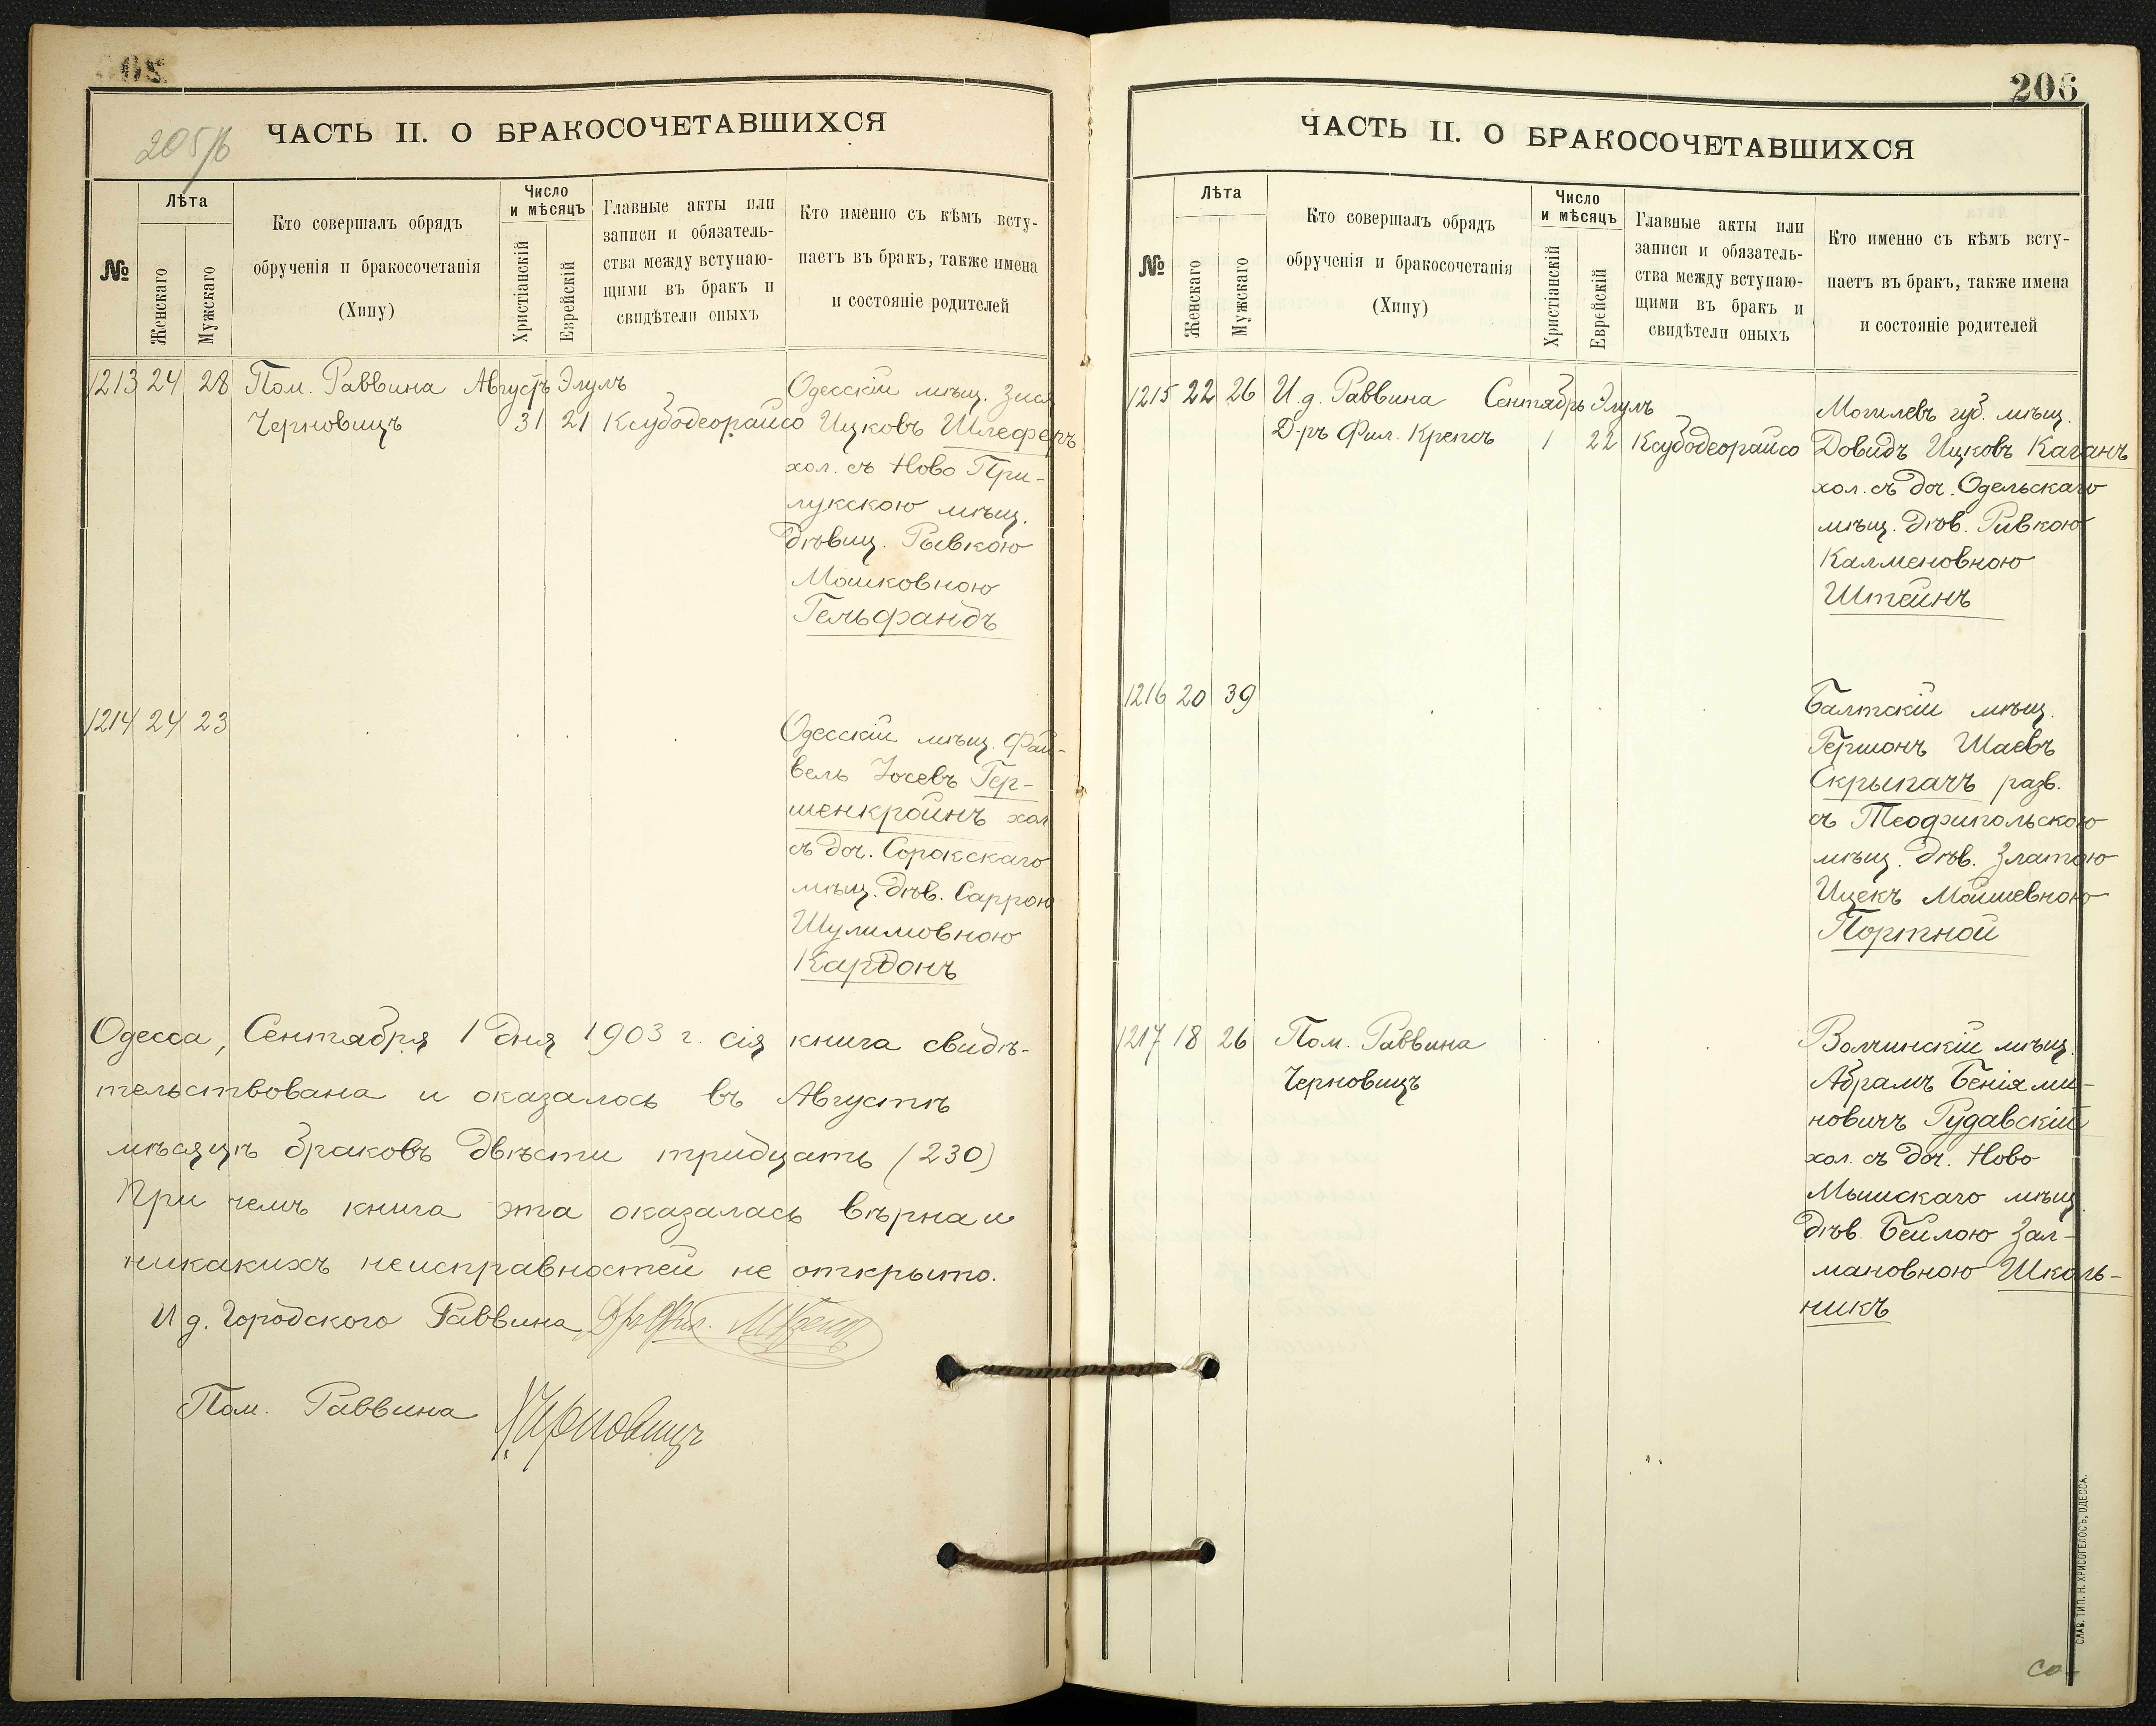 205/б
ЧАСТЬ II. О БРАКОСОЧЕТАВШИХСЯ
№
Лѣта
Женскаго
Мужскаго
Кто совершалъ обрядъ
обрученія и бракосочетанія
(Хипу)
Число
и мѣсяцъ
Христіанскій
Еврейскій
Главные акты или
записи и обязатель-
ства между вступаю-
щими въ бракъ и
свидѣтели оныхъ
Кто именно съ кѣмъ всту-
паетъ въ бракъ, также имена
и состояніе родителей
1213 24 28 Пом. Раввина Августъ Элулъ
Черновицъ 31 21 Ксубодеорайсо
Одесскій мѣщ. Зися
Ицковъ Шлеферъ
хол. съ Ново При-
лукскою мѣщ.
Дѣвиц. Рывкою
Мошковною
Гельфандъ
1214 24 23
Одесскій мѣщ. Фай-
вель Іосевъ Гер-
шенкройнъ хол
съ доч. Сорокскаго
мѣщ. Дѣв. Саррою
Шулимовною
Кардонъ
Одесса, Сентября 1 дня 1903 г. сія книга свидѣ-
тельствована и оказалось въ Августѣ
мѣсяцѣ браковъ двѣсти тридцать (230)
При чемъ книга эта оказалась вѣрна и
никакихъ неисправностей не открыто.
И д. Городского Раввина Д-ръ Фил. М Крепсъ
Пом. Раввина Черновицъ
206
ЧАСТЬ II. О БРАКОСОЧЕТАВШИХСЯ
№
Лѣта
Женскаго
Мужскаго
Кто совершалъ обрядъ
обрученія и бракосочетанія
(Хипу)
Число
и мѣсяцъ
Христіанскій
Еврейскій
Главные акты или
записи и обязатель-
ства между вступаю-
щими въ бракъ и
свидѣтели оныхъ
Кто именно съ кѣмъ всту-
паетъ въ бракъ, также имена
и состояніе родителей
1215 22 26 И. д. Раввина Сентябрь Элулъ
Д-ръ Фил. Крепсъ 1 22 Ксубодеорайсо
Могилевъ губ. мѣщ.
Довидъ Ицковъ Каганъ
хол. съ доч. Одельскаго
мѣщ. Дѣв. Ривкою
Калменовною
Штейнъ
1216 20 39
Балтскій мѣщ.
Гершонъ Шаевъ
Скрыпачъ разв.
съ Теофипольскою
мѣщ. Дѣв. Златою
Ицекъ Мойшевною
Портной
1217 18 26 Пом. Раввина
Черновицъ
Волчинскій мѣщ.
Абрамъ Беніями-
новичъ Рудавскій
хол. съ доч. Ново
Мышскаго мѣщ
Дѣв. Бейлою Зал-
мановною Школь-
никъ
СЛАВ. ТИП. Н. ХРИСОГЕЛОСЪ, ОДЕССА.